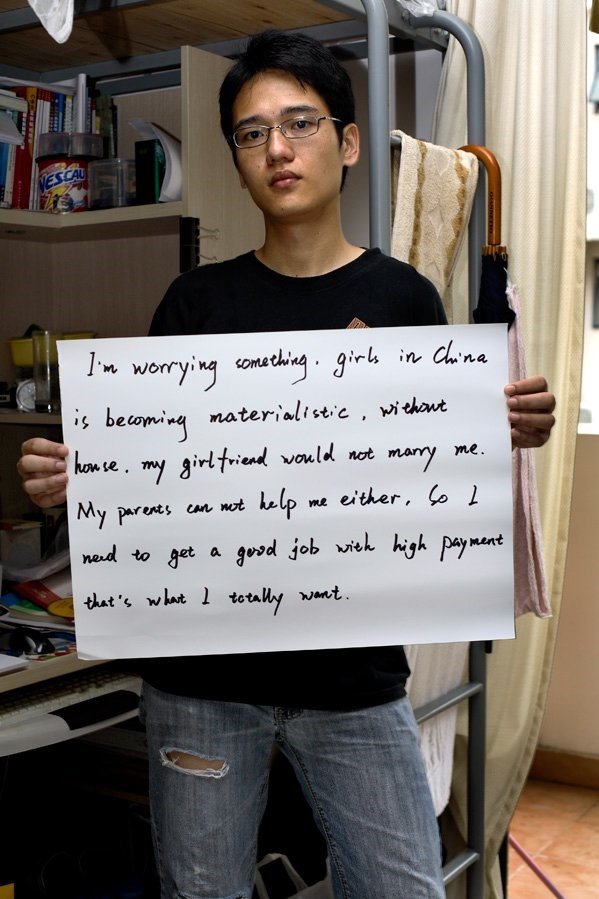 NESCAU
I'm worrying something. girls in China
is becoming materialistic, without
house, my girlfriend would not marry me.
My parents can not help me either, So I
need to get a good job with high payment
that's what I totally want.